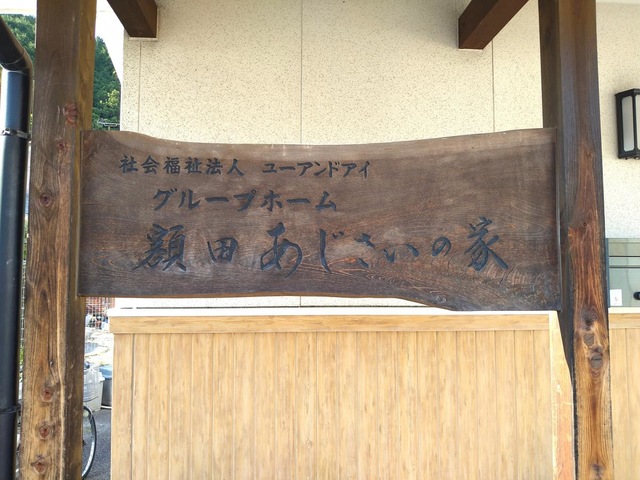 社会福祉法人 ユーアンドアイ
グループホーム
額田あじさいの家